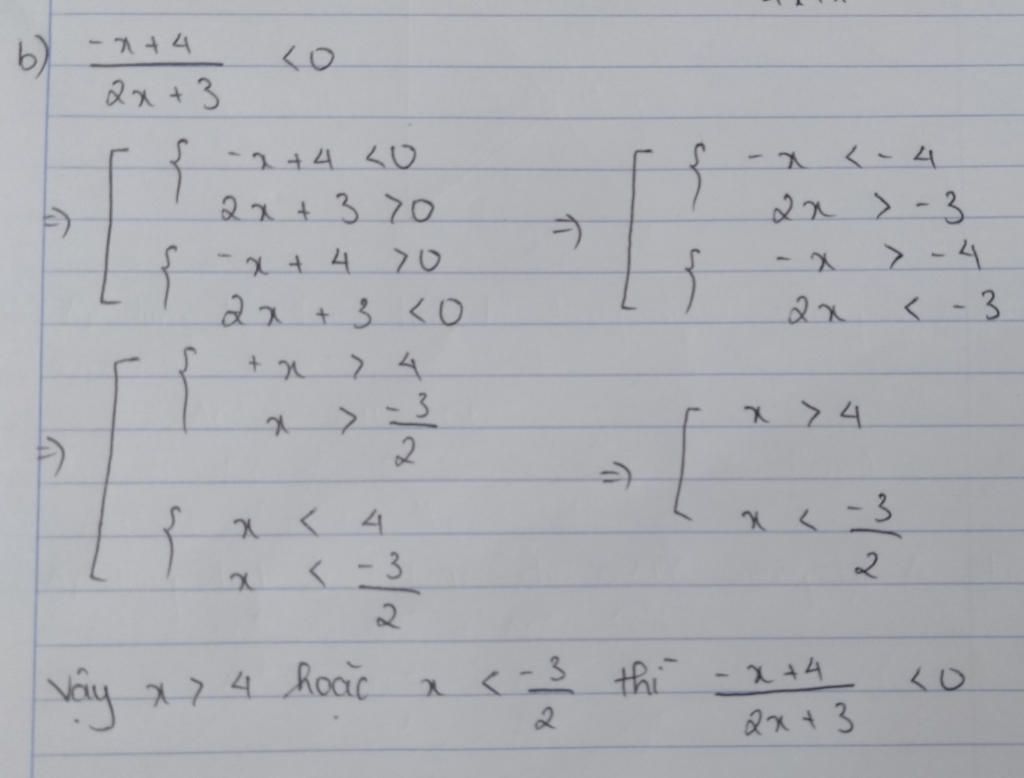 b) (-x+4)/(2x+3) < 0
=> [ { -x+4 < 0
2x + 3 > 0
{ -x + 4 > 0
2x + 3 < 0
=> [ { -x < -4
2x > -3
{ -x > -4
2x < -3
=> [ { +x > 4
x > -3/2
{ x < 4
x < -3/2
=> [ x > 4
x < -3/2
Vậy x > 4 hoặc x < -3/2 thì (-x+4)/(2x+3) < 0